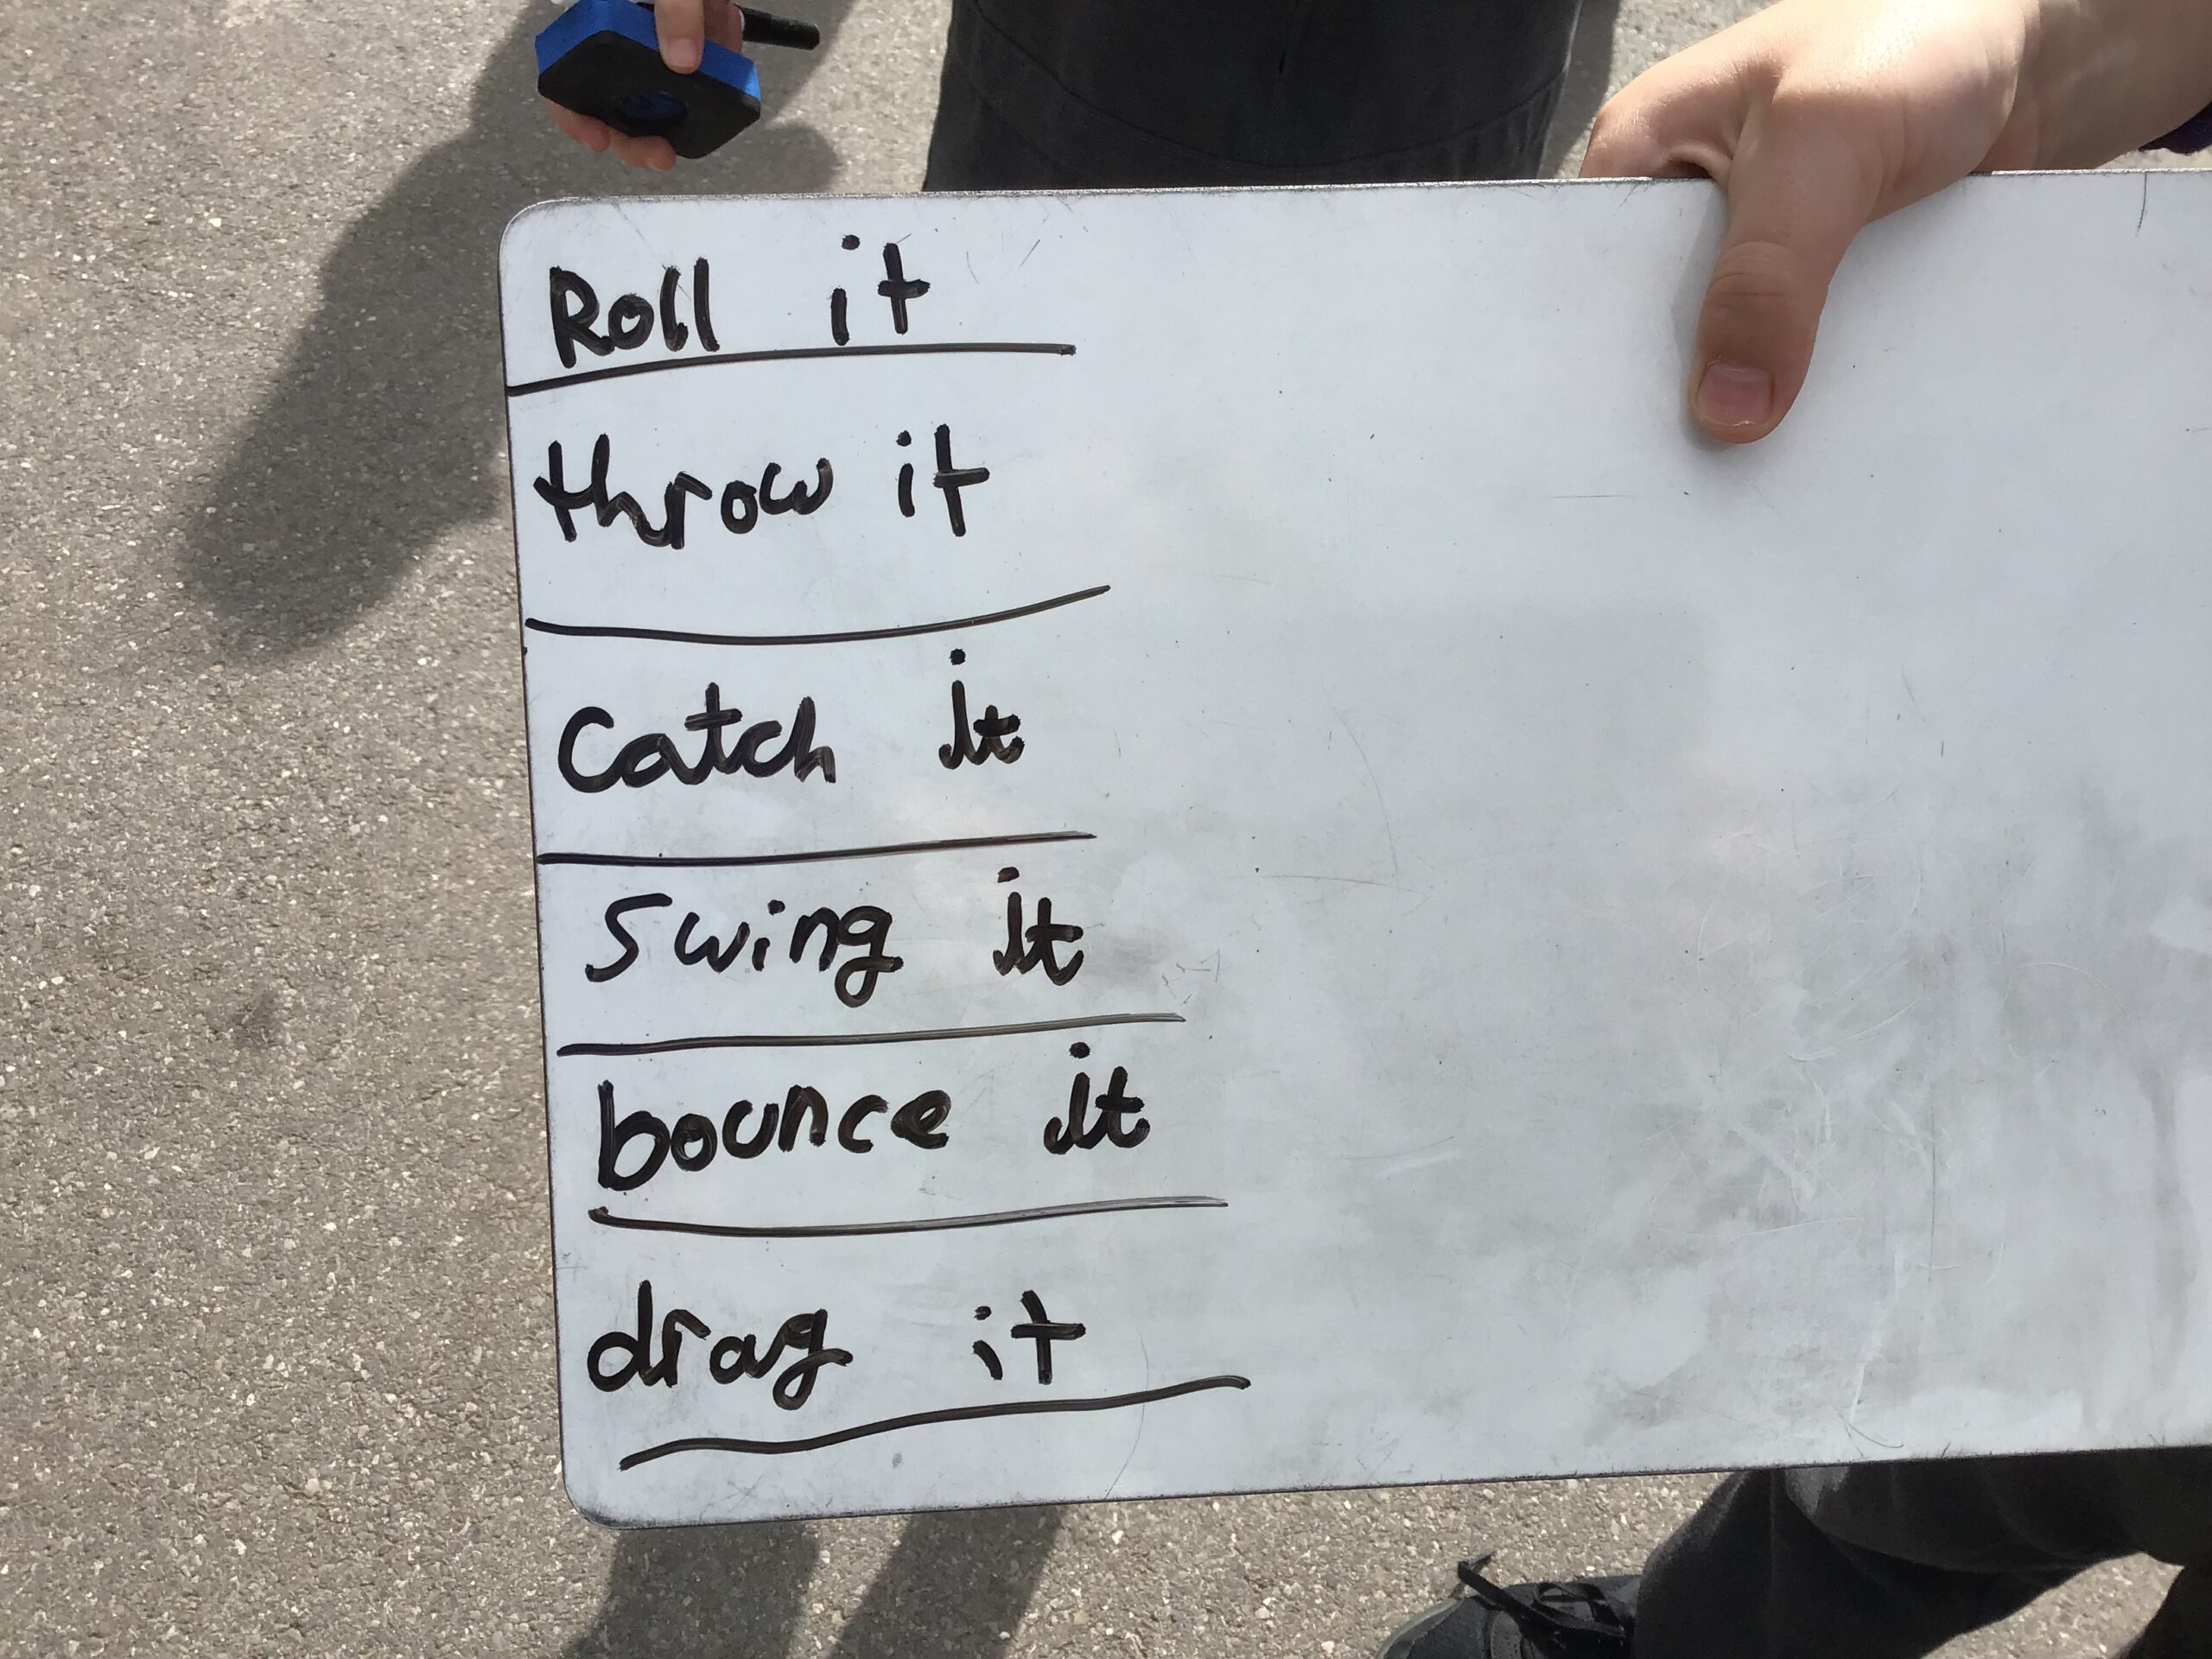 Roll it
throw it
Catch it
Swing it
bounce it
drag it